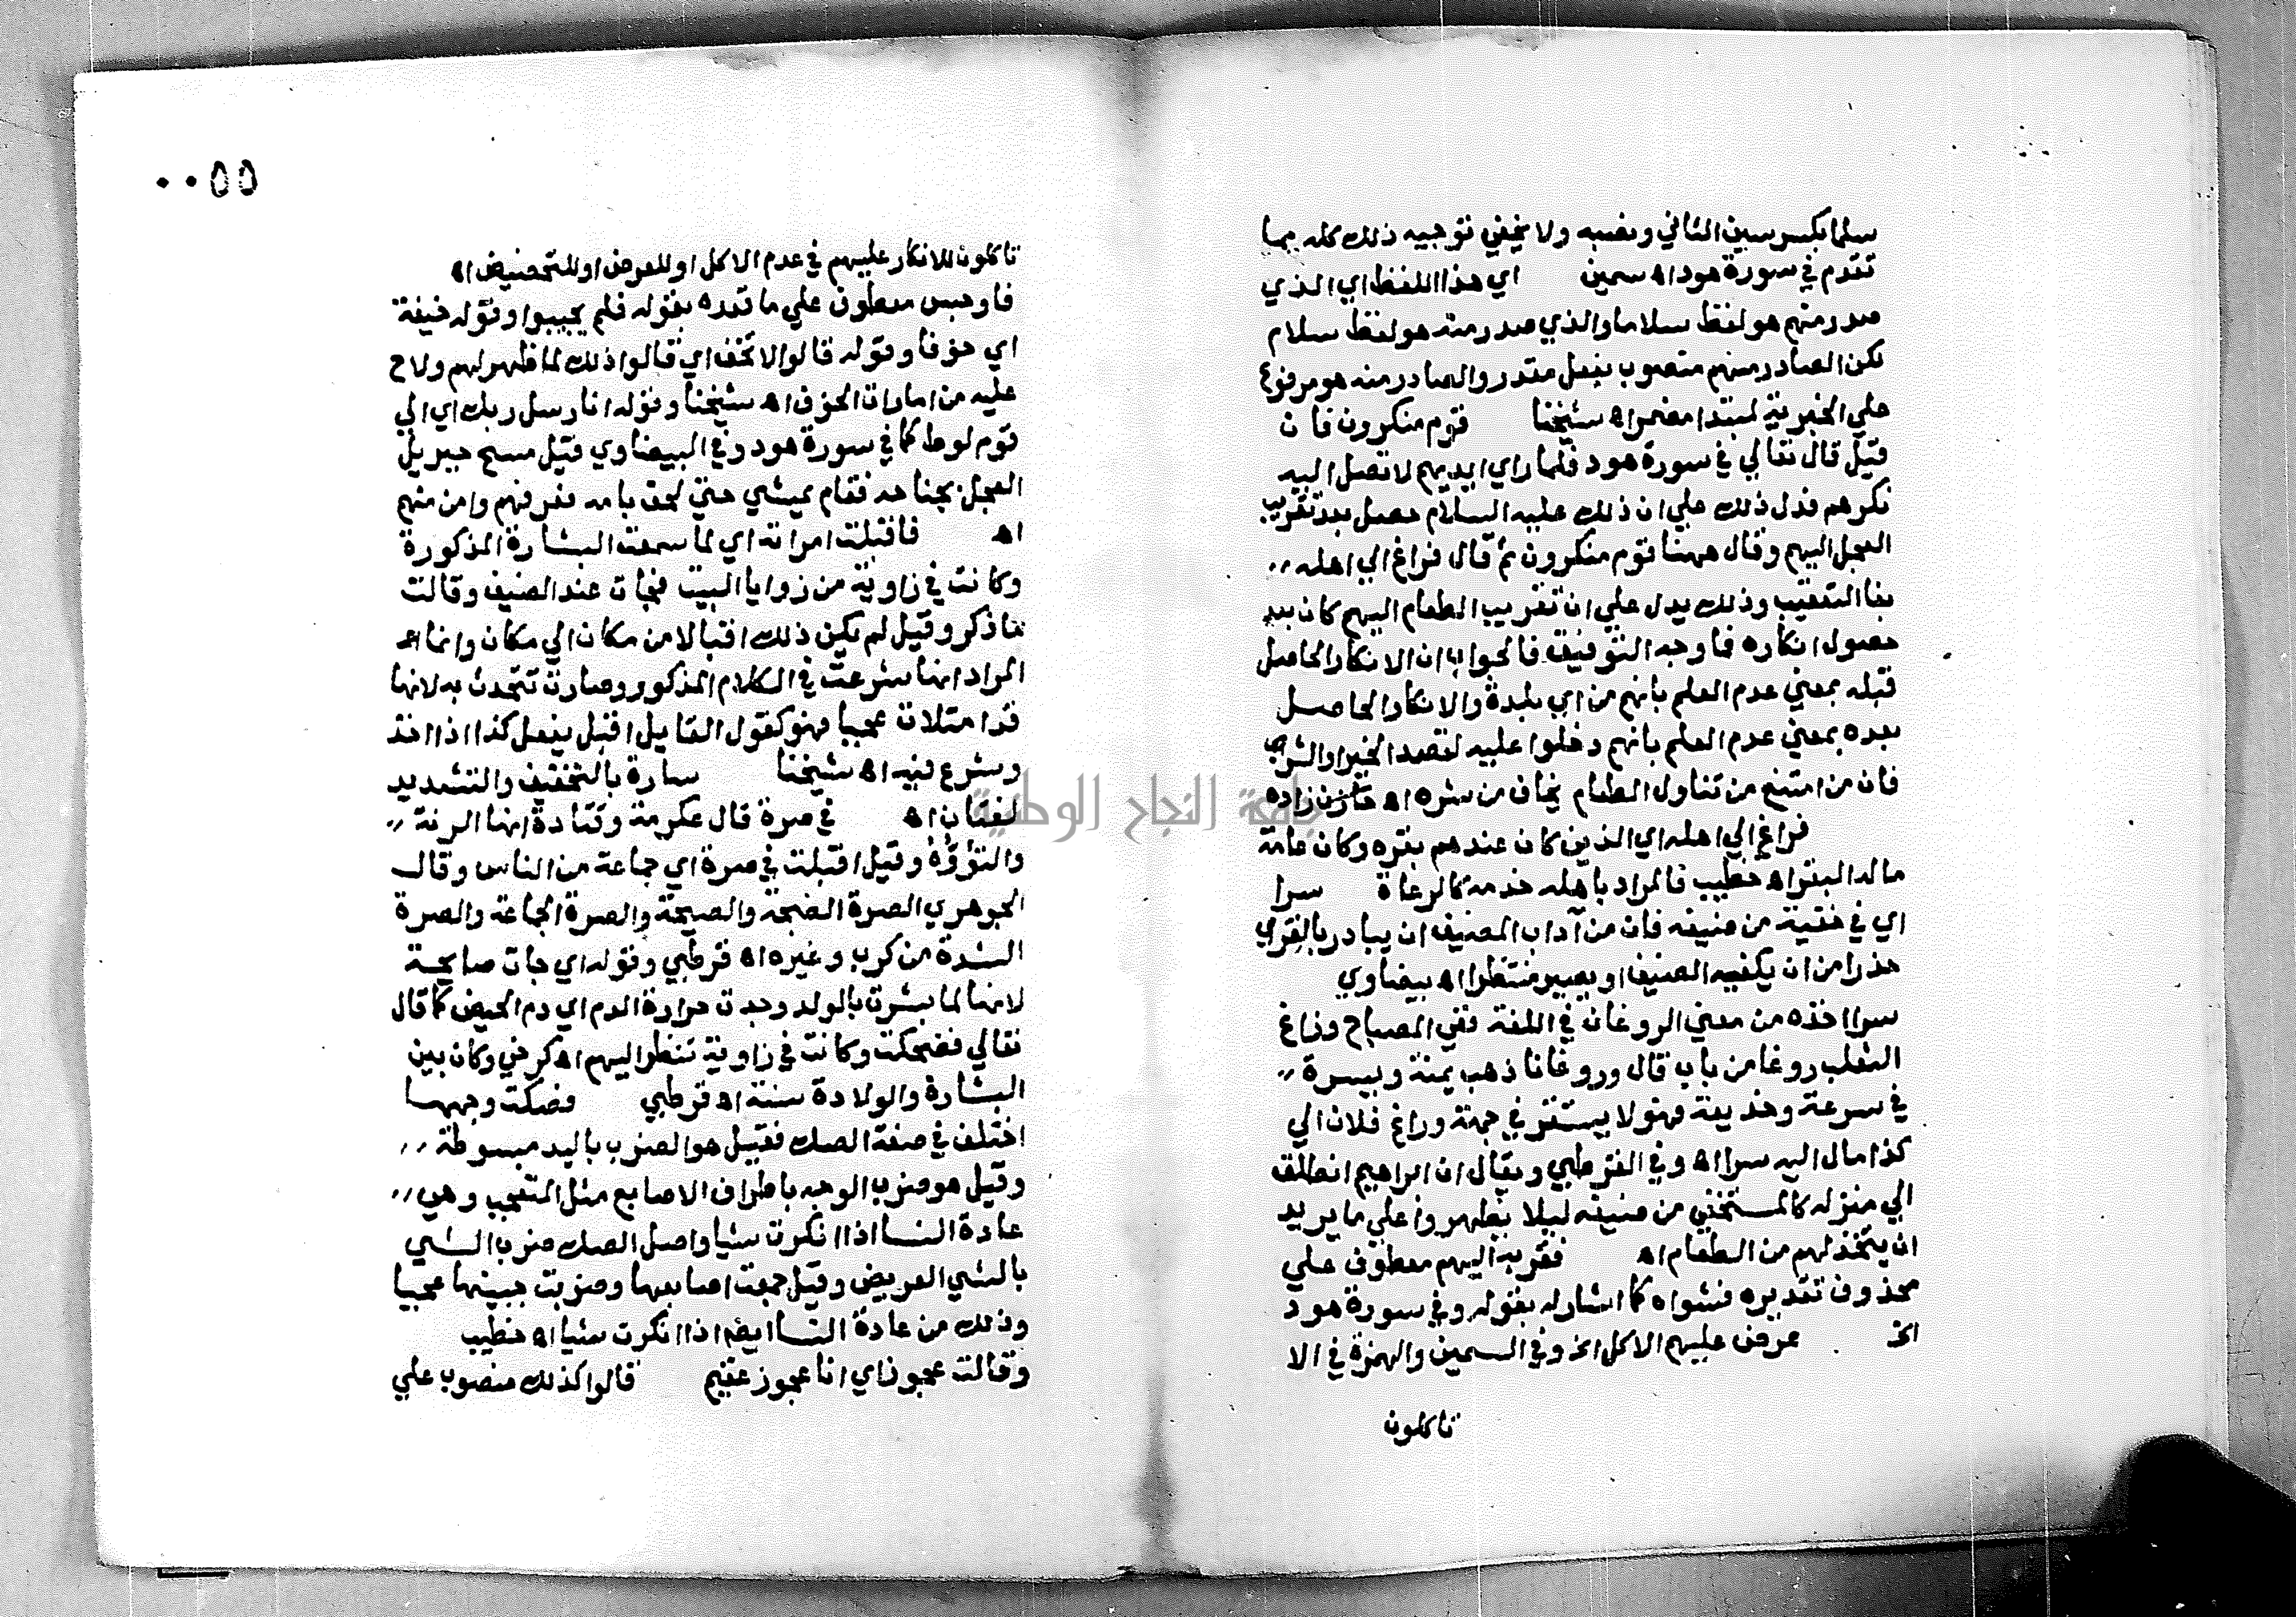 سلما بكسر سين الثاني ونصبه ولا يخفي توجيه ذلك كله مما
تقدم في سورة هود اه سمين اي هذا اللفظ اي الذي
صدر منهم هو لفظ سلاما والذي صدر منه هو لفظ سلام
لكن الصادر منهم منصوب بفعل مقدر والصادر منه هو مرفوع
علي الخبرية لمبتدا مضمر اه شيخنا قوم منكرون فان
قيل قال تعالي في سورة هود فلما راي ايديهم لا تصل اليه
نكرهم فدل ذلك علي ان ذلك عليه السلام حصل بعد تقريب
العجل اليهم وقال ههنا قوم منكرون ثم قال فراغ الي اهله
بفا التعقيب وذلك يدل علي ان تقريب الطعام اليهم كان بعد
حصول انكاره فما وجه التوفيق فالجواب ان الانكار الحاصل
قبله بمعني عدم العلم بانهم من اي بلدة والانكار الحاصل
بعده بمعني عدم العلم بانهم دخلوا عليه لقصد الخير او الشر
فان من امتنع من تناول الطعام يخاف من شره اه زاده
فراغ الي اهله اي الذين كان عندهم بقره وكان عامة
ماله البقر اه خطيب فالمراد باهله خدمه كالرعاة سرا
اي في خفية من ضيفه فان من آداب المضيف ان يبادر بالقري
حذرا من ان يكفيه الضيف او يصير منتظرا اه بيضاوي
سرا اخذه من معني الروغان في اللغة ففي المصباح وراغ
الثعلب روغا من باب قال وروغانا ذهب يمنة ويسرة
في سرعة وخديعة فهو لا يستقر في جهة وراغ فلان الي
كذا مال اليه سرا اه وفي القرطبي ويقال ان ابراهيم انطلق
الي منزله كالمستخفي من ضيفه ليلا يظهروا علي ما يريد
ان يتخذ لهم من الطعام اه فقربه اليهم معطوف علي
محذوف تقديره فشواه كما اشار له بقوله وفي سورة هود
الخ عرض عليهم الاكل الخ وفي السمين والهمزة في الا
تاكلون
٠٠٥٥
تاكلون للانكار عليهم في عدم الاكل او للعرض او للتحضيض اه
فاوجس معطوف علي ما قدره بقوله فلم يجيبوا وقوله خيفة
اي خوفا وقوله قالوا لا تخف اي قالوا ذلك لما ظهر لهم ولاح
عليه من امارات الخوف اه شيخنا وقوله انا رسل ربك اي الي
قوم لوط كما في سورة هود وفي البيضاوي قيل مسح جبريل
العجل بجناحه فقام يمشي حتي لحق بامه فعرفهم وامن منهم
اه فاقبلت امراته اي لما سمعت البشارة المذكورة
وكانت في زاوية من زوايا البيت فجات عند الضيف وقالت
ما ذكر وقيل لم يكن ذلك اقبالا من مكان الي مكان وانما
المراد انها شرعت في الكلام المذكور وصارت تتحدث به لانها
قد امتلات عجبا فهو كقول القايل اقبل يفعل كذا اذا اخذ
وشرع فيه اه شيخنا سارة بالتخفيف والتشديد
لغتان اه في صرة قال عكرمة وقتادة انها الرنة
والتؤوه وقيل اقبلت في صرة اي جماعة من الناس وقال
الجوهري الصرة الضجة والصيحة والصرة الجماعة والصرة
الشدة من كرب وغيره اه قرطبي وقوله اي جات صايحة
لانها لما بشرت بالولد وجدت حرارة الدم اي دم الحيض كما قال
تعالي فضحكت وكانت في زاوية تنظر اليهم اه كرخي وكان بين
البشارة والولادة سنة اه قرطبي فصكت وجهها
اختلف في صفة الصك فقيل هو الضرب باليد مبسوطة
وقيل هو ضرب الوجه باطراف الاصابع مثل المتعجب وهي
عادة النسا اذا انكرت شيا واصل الصك ضرب الشي
بالشي العريض وقيل جمعت اصابعها وضربت جبينها عجبا
وذلك من عادة النسا ايضا اذا انكرت شيا اه خطيب
وقالت عجوز اي انا عجوز عقيم قالوا كذلك منصوب علي
جامعة النجاح الوطنية